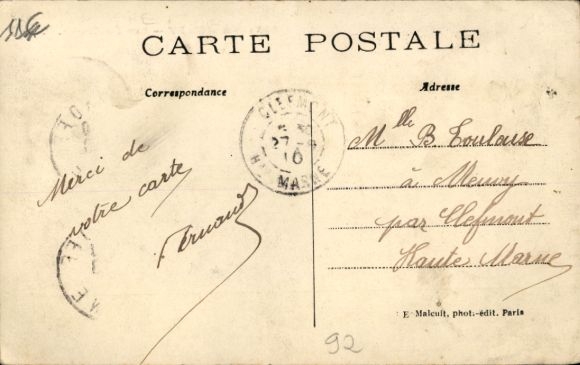 CARTE POSTALE
Correspondance
Adresse
CLEFMONT
27
10
HTE MARNE
Merci de
votre carte
Fernand
Mlle B Toulouse
à Meuvy
par Clefmont
Haute Marne
E Malcuit, phot.-édit. Paris
92